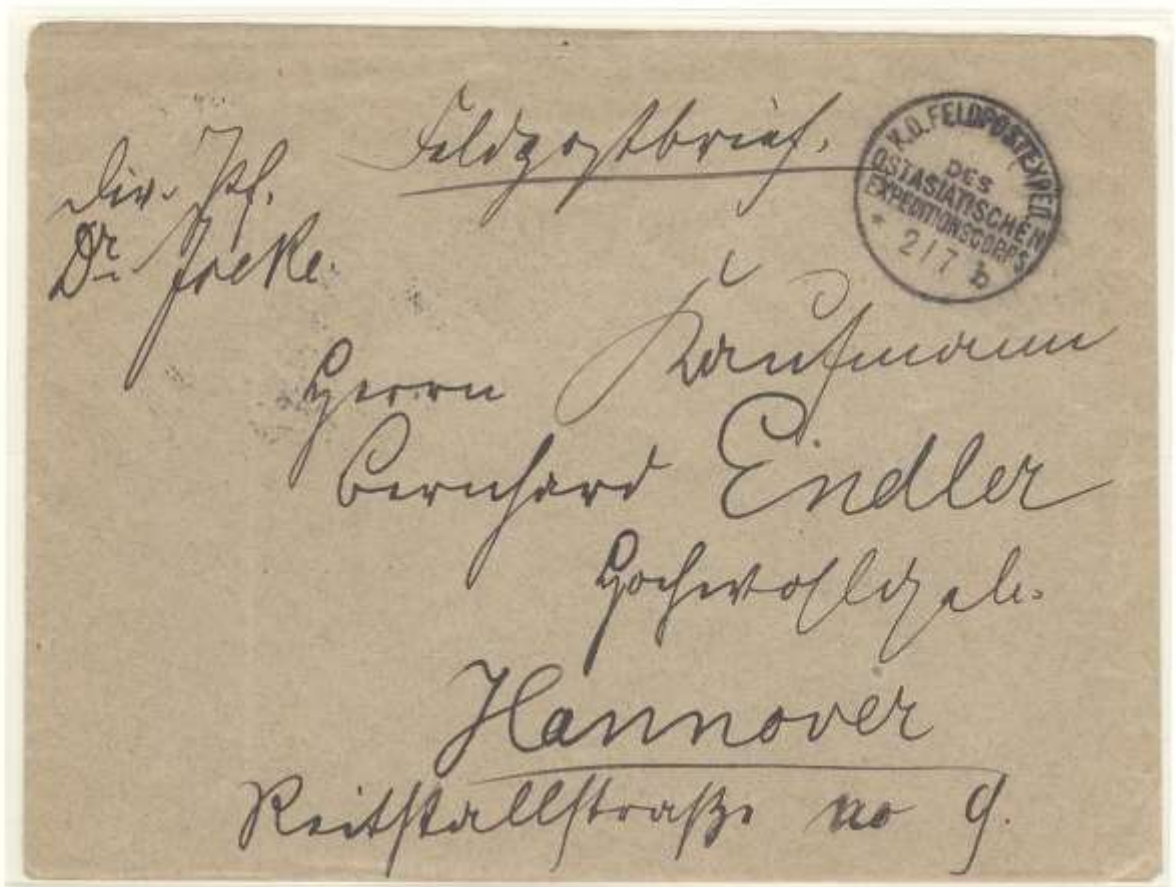 Feldpostbrief.
K.D. FELDPOSTEXPED.
DES
OSTASIATISCHEN
EXPEDITIONSCORPS
* 2/7 b
Div. Pf.
Dr.
Herrn Kaufmann
Bernhard Endler
Hochwohlgeb.
Hannover
Reitstallstraße no 9.